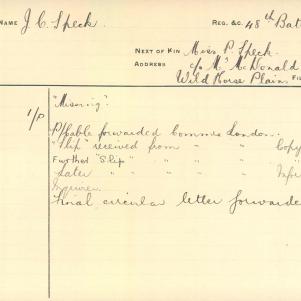 NAME J. C. Speck. REG. &C. 48th Bat
NEXT OF KIN Miss P. Speck.
ADDRESS c/o Mr McDonald
Wild Horse Plain. Fi
"Missing".
1/P
P/Cable forwarded Commrs London.
"Slip" received from " " Copy
Further "Slip" " " "
Later " " " "
Final circular letter forwarde